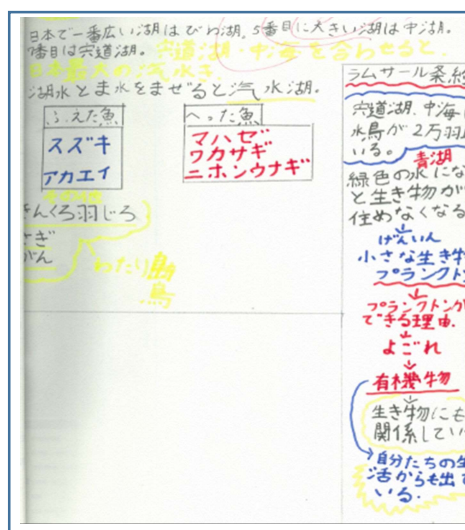 日本で一番広い湖はびわ湖,5番目に大きい湖は中海.
7番目は宍道湖.宍道湖・中海を合わせると
日本最大の汽水き.
海水とま水をまぜると汽水湖.
ふえた魚
スズキ
アカエイ
へった魚
マハゼ
ワカサギ
ニホンウナギ
その他
きんくろ羽じろ
さぎ
がん
わたり鳥
ラムサール条約
宍道湖.中海
水鳥が2万羽
いる。
青湖
緑色の水にな
と生き物が
住めなくなる
げんいん
小さな生き物
プランクト
プランクトンが
できる理由.
よごれ
有機物
生き物にも
関係してい
自分たちの生
活からも出て
いる.